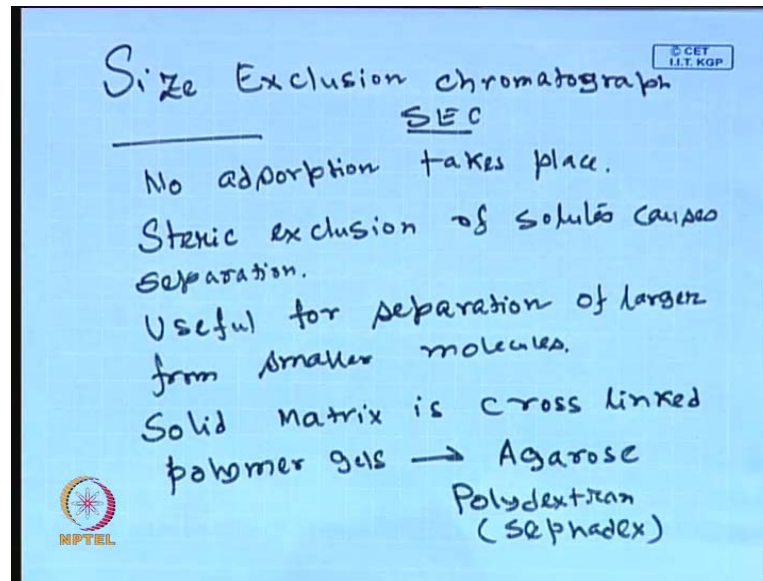 © CET
I.I.T. KGP
Size Exclusion chromatograph
SEC
No adsorption takes place.
Steric exclusion of solutes causes
separation.
Useful for separation of larger
from smaller molecules.
Solid Matrix is cross linked
polymer gels → Agarose
Polydextran
(Sephadex)
NPTEL